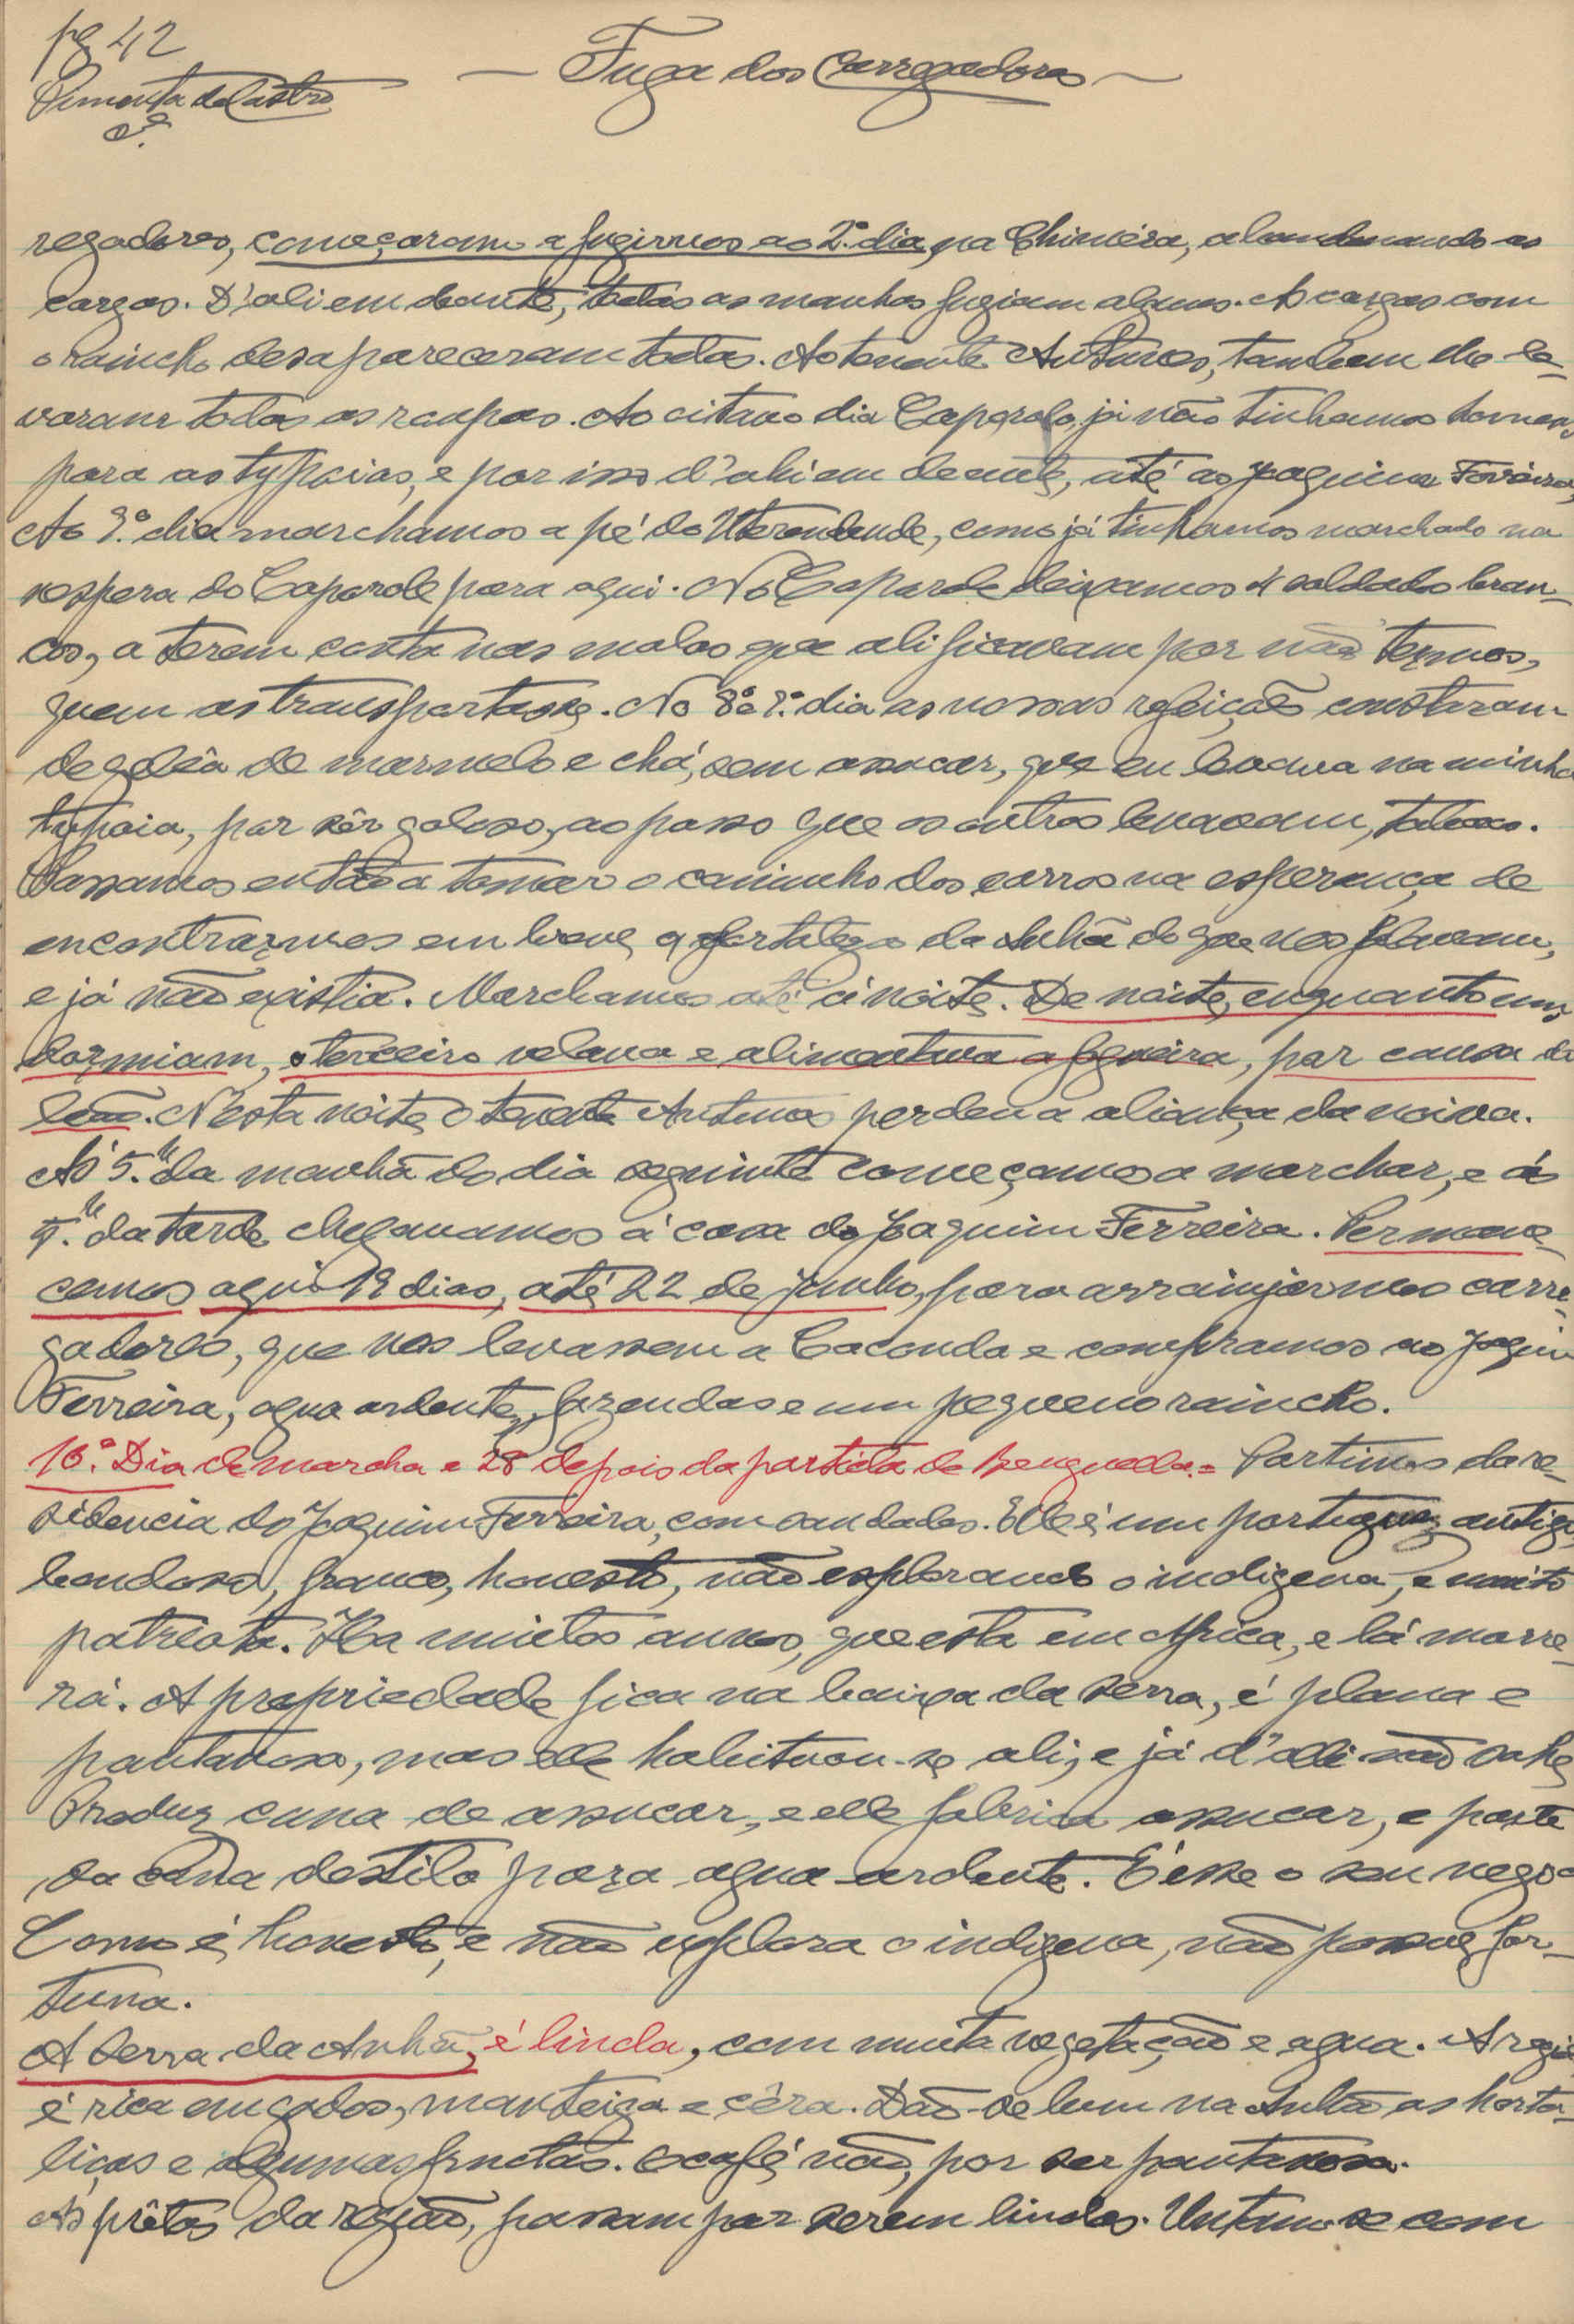 pg 42
Pimenta de Castro
— Fuga dos Carregadores —
regadores, começaram a fugirnos ao 2.º dia, na Chiméra, abandonando as
cargas. D'ali em deante, todas as manhãs fugiam alguns. As cargas com
o rancho desapareceram todas. Ao tenente Antunes, tambem lhe le-
varam todas as roupas. Ao oitavo dia Caporolo, já não tinhamos homens
para as typoias, e por isso d'ahi em deante, até ao Joaquim Ferreira,
Ao 9.º dia marchamos a pé do Uterendende, como já tinhamos marchado na
vespera do Caporole para aqui. No Caporole deixamos 4 soldados bran-
cos, a terem conta nas malas que ali ficavam por não termos,
quem as transportasse. No 8º e 9.º dia as nossas refeições constaram
de geléa de marmelo e chá, sem assucar, que eu levava na minha
typoia, por sêr goloso, ao passo que os outros levavam, tabaco.
Passamos então a tomar o caminho dos carros na esperança de
encontrarmos em breve, a fortaleza da Anhã de que nos falavam,
e já não existia. Marchamos até á noite. De noite, enquanto uns
dormiam, o terceiro velava e alimentava a fogueira, por causa do
leão. Nesta noite, o tenente Antunes perdeu a aliança da noiva.
Ás 5.h da manhã do dia seguinte começamos a marchar, e ás
5.h da tarde chegavamos á casa do Joaquim Ferreira. Permane-
cemos aqui 19 dias, até 22 de junho, para arranjarmos carre-
gadores, que nos levassem a Caconda e compramos ao Joaquim
Ferreira, agua ardente, fazendas e um pequeno rancho.
10.º Dia de marcha e 28 depois da partida de Benguella = Partimos da re-
sidencia do Joaquim Ferreira, com saudades. Elle é um portuguez antigo,
bondoso, franco, honesto, não explorando o indigena, e muito
patriota. Ha muitos annos, que esta em Africa, e lá morre-
rá. A propriedade fica na baixa da serra, é plana e
pantanosa, mas elle habituou-se ali, e já d'alli não sahe
Produz cana de assucar, e elle fabrica assucar, e parte
da cana destila para agua ardente. É esse o seu nego
Como é, honesto, e não explora o indigena, não possue for-
tuna.
A Serra da Anhã, é linda, com muita vegetação e agua. A região
é rica em gados, manteiga e cêra. Dão-se bem na Anhã as horta-
liças e algumas fructas. O café, não, por ser pantanosa.
As prêtas da região, passam por serem lindas. Untam-se com